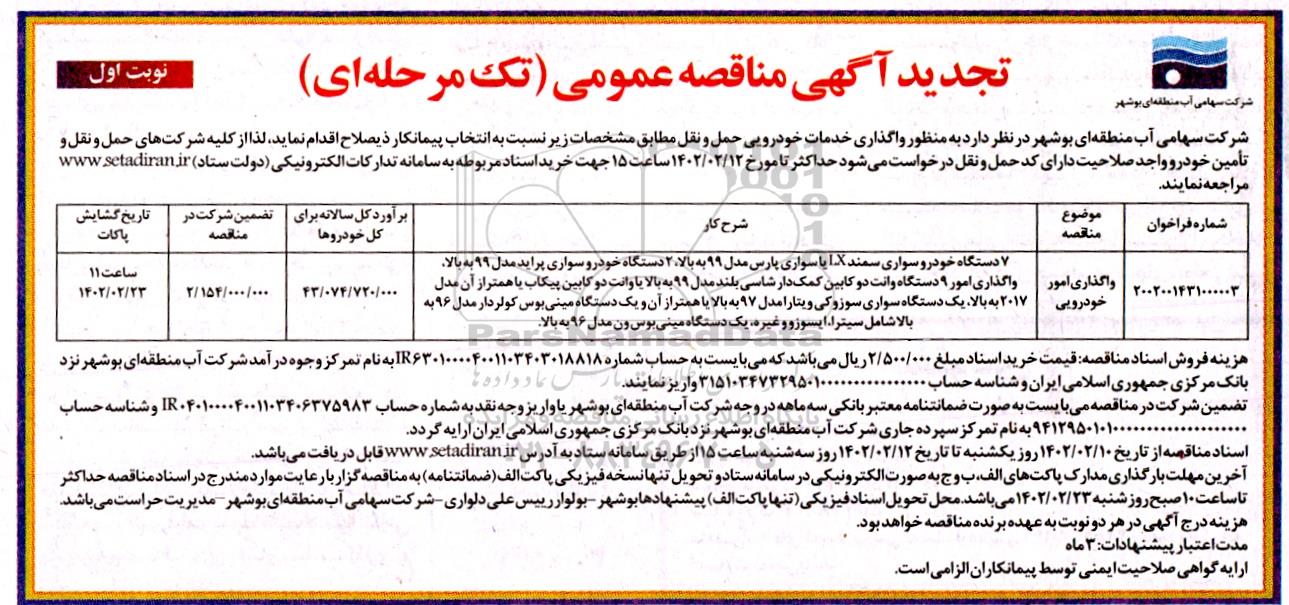 تجدید آگهی مناقصه عمومی (تک مرحله‌ای)
نوبت اول
شرکت سهامی آب منطقه‌ای بوشهر
شرکت سهامی آب منطقه‌ای بوشهر در نظر دارد به منظور واگذاری خدمات خودرویی حمل و نقل مطابق مشخصات زیر نسبت به انتخاب پیمانکار ذیصلاح اقدام نماید، لذا از کلیه شرکت‌های حمل و نقل و
تأمین خودرو واجد صلاحیت دارای کد حمل و نقل درخواست می‌شود حداکثر تا مورخ ۱۴۰۲/۰۲/۱۲ ساعت ۱۵ جهت خرید اسناد مربوطه به سامانه تدارکات الکترونیکی (دولت ستاد) www.setadiran.ir
مراجعه نمایند.
شماره فراخوان
موضوع مناقصه
شرح کار
برآورد کل سالانه برای کل خودروها
تضمین شرکت در مناقصه
تاریخ گشایش پاکات
۲۰۰۲۰۰۱۴۳۱۰۰۰۰۰۳
واگذاری امور خودرویی
۷ دستگاه خودرو سواری سمند LX یا سواری پارس مدل ۹۹ به بالا، ۲ دستگاه خودرو سواری پراید مدل ۹۹ به بالا،
واگذاری امور ۹ دستگاه وانت دو کابین کمک‌دار شاسی بلند مدل ۹۹ به بالا یا وانت دو کابین پیکاپ یا همتراز آن مدل
۲۰۱۷ به بالا، یک دستگاه سواری سوزوکی ویتارا مدل ۹۷ به بالا یا همتراز آن و یک دستگاه مینی‌بوس کولردار مدل ۹۶ به
بالا شامل سیترا، ایسوزو و غیره، یک دستگاه مینی‌بوس ون مدل ۹۶ به بالا.
۴۳/۰۷۴/۷۲۰/۰۰۰
۲/۱۵۴/۰۰۰/۰۰۰
ساعت ۱۱
۱۴۰۲/۰۲/۲۳
هزینه فروش اسناد مناقصه: قیمت خرید اسناد مبلغ ۲/۵۰۰/۰۰۰ ریال می‌باشد که می‌بایست به حساب شماره IR۶۳۰۱۰۰۰۰۴۰۰۱۱۰۳۴۰۳۰۱۸۸۱۸ به نام تمرکز وجوه درآمد شرکت آب منطقه‌ای بوشهر نزد
بانک مرکزی جمهوری اسلامی ایران و شناسه حساب واریز نمایند.
تضمین شرکت در مناقصه می‌بایست به صورت ضمانتنامه معتبر بانکی سه ماهه در وجه شرکت آب منطقه‌ای بوشهر یا واریز وجه نقد به شماره حساب IR۰۴۰۱۰۰۰۰۴۰۰۱۱۰۳۴۰۶۳۷۵۹۸۳ و شناسه حساب
به نام تمرکز سپرده جاری شرکت آب منطقه‌ای بوشهر نزد بانک مرکزی جمهوری اسلامی ایران ارایه گردد.
اسناد مناقصه از تاریخ ۱۴۰۲/۰۲/۱۰ روز یکشنبه تا تاریخ ۱۴۰۲/۰۲/۱۲ روز سه‌شنبه ساعت ۱۵ از طریق سامانه ستاد به آدرس www.setadiran.ir قابل دریافت می‌باشد.
آخرین مهلت بارگذاری مدارک پاکت‌های الف، ب و ج به صورت الکترونیکی در سامانه ستاد و تحویل تنها نسخه فیزیکی پاکت الف (ضمانتنامه) به مناقصه‌گزار با رعایت موارد مندرج در اسناد مناقصه حداکثر
تا ساعت ۱۰ صبح روز شنبه ۱۴۰۲/۰۲/۲۳ می‌باشد. محل تحویل اسناد فیزیکی (تنها پاکت الف) پیشنهادها بوشهر - بولوار رییس علی دلواری - شرکت سهامی آب منطقه‌ای بوشهر - مدیریت حراست می‌باشد.
هزینه درج آگهی در هر دو نوبت به عهده برنده مناقصه خواهد بود.
مدت اعتبار پیشنهادات: ۳ ماه
ارایه گواهی صلاحیت ایمنی توسط پیمانکاران الزامی است.
ParsNamadData
پایگاه اطلاع رسانی مناقصه و مزایده